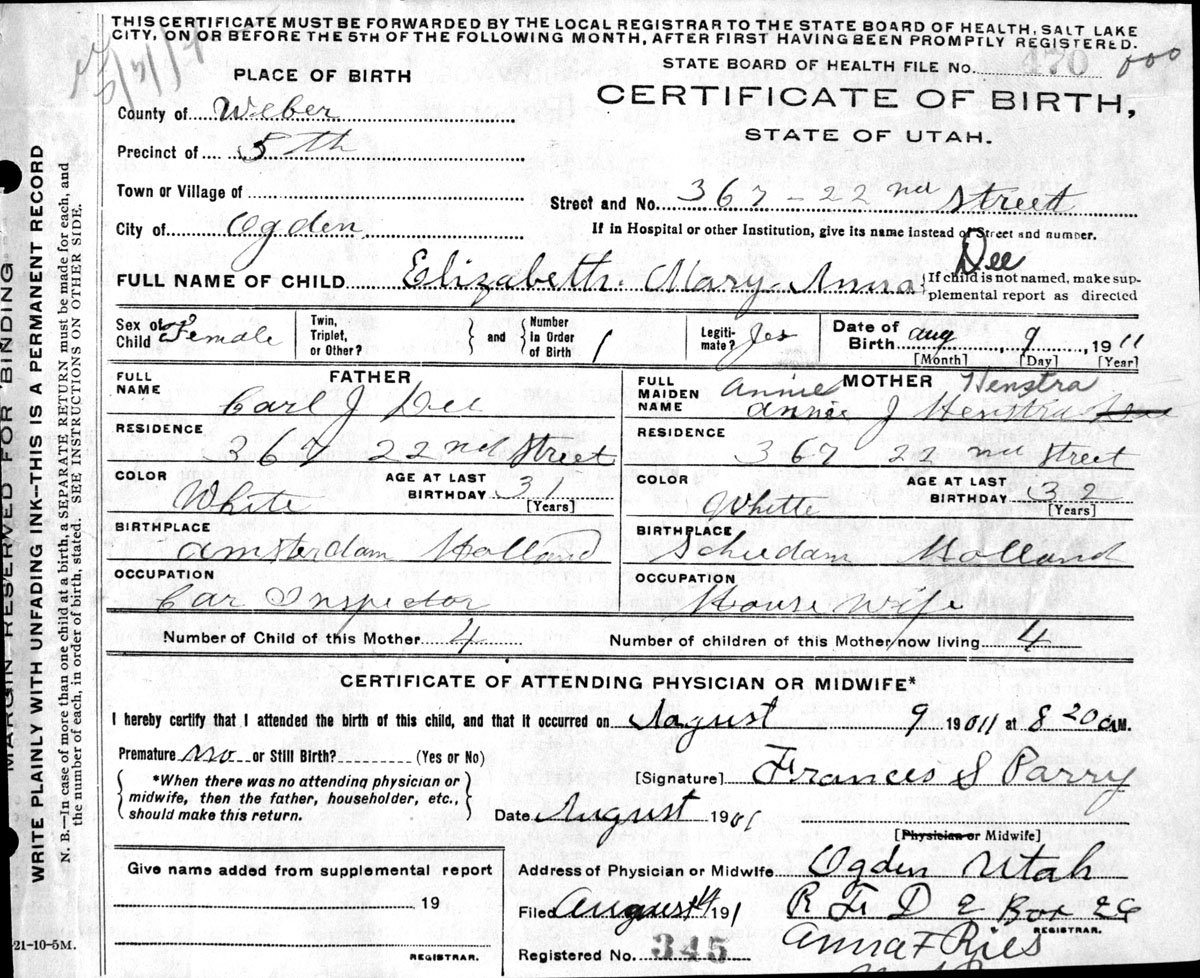 THIS CERTIFICATE MUST BE FORWARDED BY THE LOCAL REGISTRAR TO THE STATE BOARD OF HEALTH, SALT LAKE
CITY, ON OR BEFORE THE 5TH OF THE FOLLOWING MONTH, AFTER FIRST HAVING BEEN PROMPTLY REGISTERED.
STATE BOARD OF HEALTH FILE No. 470 000
PLACE OF BIRTH
CERTIFICATE OF BIRTH,
STATE OF UTAH.
County of Weber
Precinct of 5th
Town or Village of
Street and No. 367 - 22nd Street
City of Ogden
If in Hospital or other Institution, give its name instead of Street and number.
FULL NAME OF CHILD Elizabeth. Mary. Anna Dee
If child is not named, make sup-
plemental report as directed
Sex of Child Female
Twin, Triplet, or Other? and Number in Order of Birth 1
Legiti-mate? Yes
Date of Birth Aug 9 1911
[Month] [Day] [Year]
FATHER
FULL NAME Carl J Dee
RESIDENCE 367 22nd Street
COLOR White AGE AT LAST BIRTHDAY 31 [Years]
BIRTHPLACE Amsterdam Holland
OCCUPATION Car Inspector
MOTHER
FULL MAIDEN NAME Annie Henstra
Annie J Henstra
RESIDENCE 367 22nd Street
COLOR Whitte AGE AT LAST BIRTHDAY 32 [Years]
BIRTHPLACE Schiedam Holland
OCCUPATION House Wife
Number of Child of this Mother 4 Number of children of this Mother now living 4
CERTIFICATE OF ATTENDING PHYSICIAN OR MIDWIFE*
I hereby certify that I attended the birth of this child, and that it occurred on August 9 19011 at 8 20 A.M.
Premature no or Still Birth? (Yes or No)
*When there was no attending physician or
midwife, then the father, householder, etc.,
should make this return.
[Signature] Frances S Parry
Date August 1901
[Physician or Midwife]
Give name added from supplemental report
19
REGISTRAR.
Address of Physician or Midwife Ogden Utah
R F D 2 Box 26
Filed August 14 191
REGISTRAR.
Anna F Ries
Registered No. 345
21-10-5M.
MARGIN RESERVED FOR BINDING
WRITE PLAINLY WITH UNFADING INK—THIS IS A PERMANENT RECORD
N. B.—In case of more than one child at a birth, a SEPARATE RETURN must be made for each, and
the number of each, in order of birth, stated. SEE INSTRUCTIONS ON OTHER SIDE.